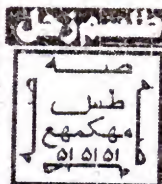 طلسم زحل
صه
طس
مهكمهع
٥١ ٥١ ٥١